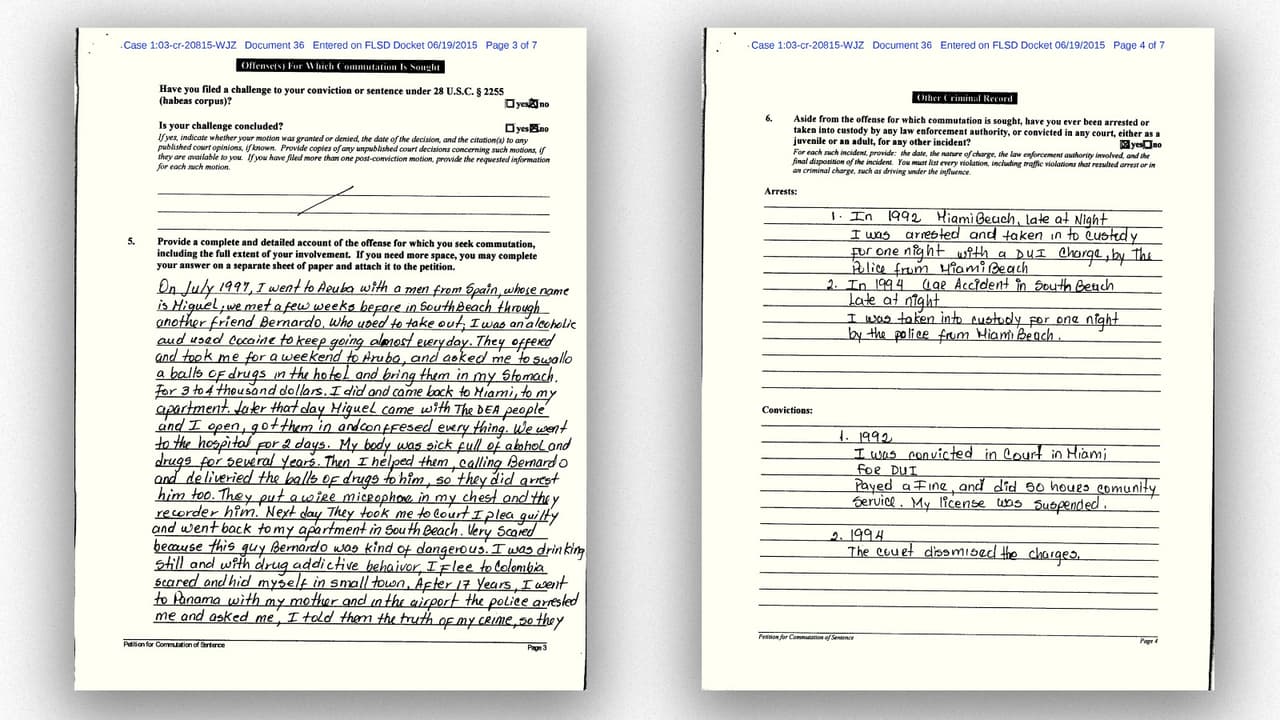 Case 1:03-cr-20815-WJZ Document 36 Entered on FLSD Docket 06/19/2015 Page 3 of 7
Offense(s) For Which Commutation Is Sought
Have you filed a challenge to your conviction or sentence under 28 U.S.C. § 2255
(habeas corpus)?
yes no
Is your challenge concluded?
yes no
If yes, indicate whether your motion was granted or denied, the date of the decision, and the citation(s) to any
published court opinions, if known. Provide copies of any unpublished court decisions concerning such motions, if
they are available to you. If you have filed more than one post-conviction motion, provide the requested information
for each such motion.
5. Provide a complete and detailed account of the offense for which you seek commutation,
including the full extent of your involvement. If you need more space, you may complete
your answer on a separate sheet of paper and attach it to the petition.
On July 1997, I went to Aruba with a men from Spain, whose name
is Miguel, we met a few weeks before in South beach through
another friend Bernardo, who used to take out, I was an alcoholic
and used Cocaine to keep going almost everyday. They offered
and took me for a weekend to Aruba, and asked me to swallo
a balls of drugs in the hotel and bring them in my Stomach.
For 3 to 4 thousand dollars. I did and came back to Miami, to my
apartment. Later that day Miguel came with The DEA people
and I open, got them in and conffesed every thing. We went
to the hospital for 2 days. My body was sick full of alohol and
drugs for several Years. Then I helped them, calling Bernardo
and deliveried the balls of drugs to him, so they did arrest
him too. They put a wire microphone in my chest and they
recorder him. Next day They took me to Court I plea guilty
and went back to my apartment in South Beach. Very Scared
because this guy Bernardo was kind of dangerous. I was drinking
still and with drug addictive behaivor, I Flee to Colombia
scared and hid myself in small town. After 17 Years, I went
to Panama with my mother and in the airport the police arrested
me and asked me, I told them the truth of my crime, so they
Petition for Commutation of Sentence
Page 3
Case 1:03-cr-20815-WJZ Document 36 Entered on FLSD Docket 06/19/2015 Page 4 of 7
Other Criminal Record
6. Aside from the offense for which commutation is sought, have you ever been arrested or
taken into custody by any law enforcement authority, or convicted in any court, either as a
juvenile or an adult, for any other incident?
yes no
For each such incident, provide: the date, the nature of charge, the law enforcement authority involved, and the
final disposition of the incident. You must list every violation, including traffic violations that resulted arrest or in
an criminal charge, such as driving under the influence.
Arrests:
1. In 1992 Miami Beach, late at Night
I was arrested and taken in to custody
for one night with a DUI Charge, by The
Police from Miami Beach
2. In 1994 Car Accident in South Beach
Late at night
I was taken into custody for one night
by the police from Miami Beach.
Convictions:
1. 1992
I was convicted in Court in Miami
For DUI
Payed a Fine, and did 50 hours comunity
Service. My license was Suspended.
2. 1994
The court dissmised the charges.
Petition for Commutation of Sentence
Page 4